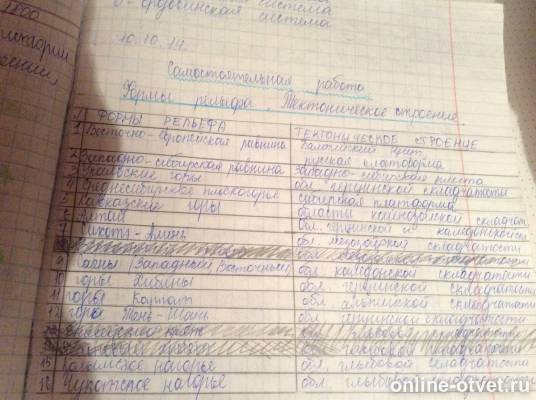 О - ордовикская система
10.10.14.
Самостоятельная работа
Формы рельефа. Тектоническое строение.
ФОРМЫ РЕЛЬЕФА ТЕКТОНИЧЕСКОЕ СТРОЕНИЕ
1 Восточно-Европейская равнина Балтийский щит,
русская платформа
2 Западно-сибирская равнина Западно-сибирская плита
3 Уральские горы обл. герцинской складчатости
4 Среднесибирское плоскогорье сибирская платформа
5 Кавказские горы области кайнозойской складчат.
6 Алтай обл. герцинской и каледонской
7 Сихотэ-Алинь обл. мезозойской складчатости
9 Саяны (Западный, Восточный) обл. каледонской складчатости
10 горы Хибины обл. герцинской складчатости
11 горы Карпаты обл. альпийской складчатости
12 гора Тянь-Шань обл. герцинской складчатости
15 Колымское нагорье обл. глыбовой складчатости
16 Чукотское нагорье обл. глыбовой
online-otvet.ru